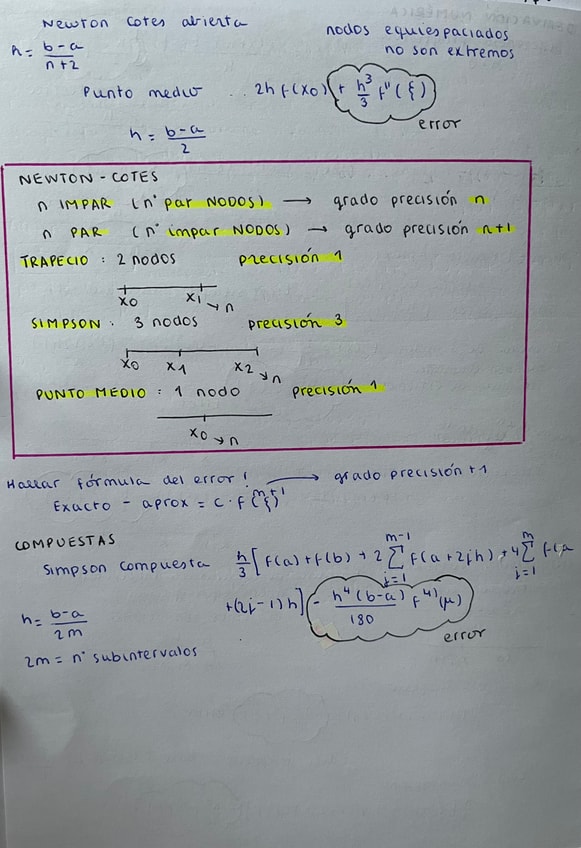 Newton cotes abierta
nodos equiespaciados
no son extremos
h = b-a / n+2
Punto medio .. 2h f(x0) + h³/3 f''(ξ)
error
h = b-a / 2
NEWTON - COTES
n IMPAR (n° par NODOS) → grado precisión n
n PAR (n° impar NODOS) → grado precisión n+1
TRAPECIO : 2 nodos precisión 1
x0 x1 → n
SIMPSON : 3 nodos precisión 3
x0 x1 x2 → n
PUNTO MEDIO : 1 nodo precisión 1
x0 → n
Hallar fórmula del error! → grado precisión +1
Exacto - aprox = c · f
COMPUESTAS
Simpson compuesta h/3 [f(a) + f(b) + 2 ∑_{j=1}^{m-1} f(a + 2jh) + 4 ∑_{j=1}^{m} f(a
+(2j-1)h] - h⁴(b-a)/180 f⁴⁾(μ)
error
h = b-a / 2m
2m = n° subintervalos